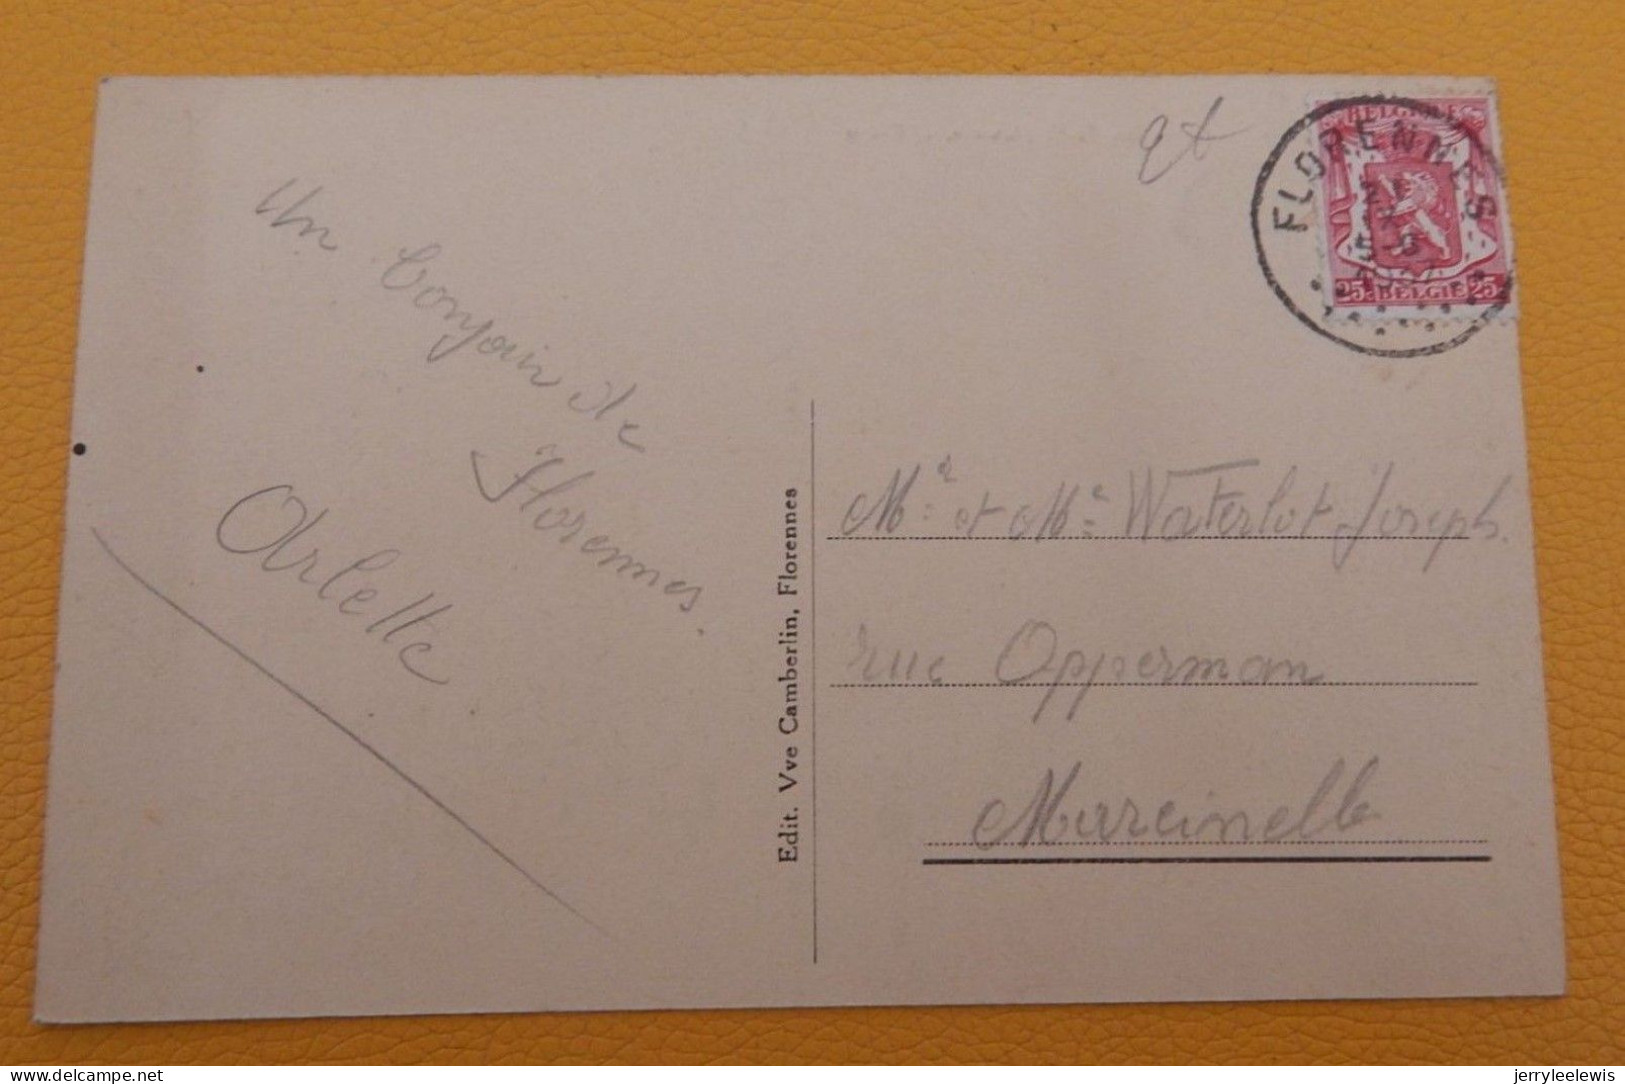 et
BELGIQUE
FLORENNES
25 BELGIE 25
Un bonjour de
Florennes.
Arlette
Edit. Vve Camberlin, Florennes
Mr et Me Waterlot Joseph.
rue Opperman
Marcinelle
www.delcampe.net
jerryleelewis